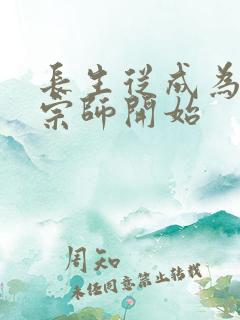 長生從成為
宗師開始
周知
未經同意禁止轉載